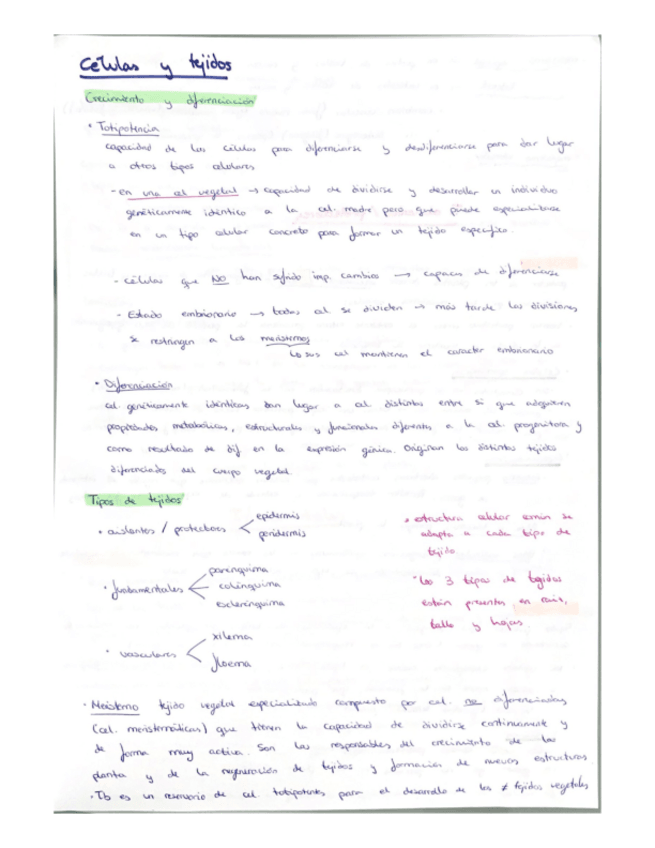 Células y tejidos
Crecimiento y diferenciación
• Totipotencia
capacidad de las células para diferenciarse y desdiferenciarse para dar lugar
a otros tipos celulares
- en una cel vegetal → capacidad de dividirse y desarrollar un individuo
genéticamente idéntico a la cel. madre pero que puede especializarse
en un tipo celular concreto para formar un tejido específico.
- células que NO han sufrido imp. cambios → capaces de diferenciarse
- Estado embrionario → todas cel se dividen → más tarde las divisiones
se restringen a los meristemos
↳ sus cel mantienen el carácter embrionario
• Diferenciación
cel. genéticamente idénticas dan lugar a cel. distintas entre sí que adquieren
propiedades metabólicas, estructurales y funcionales diferentes a la cel. progenitora y
como resultado de dif en la expresión génica. Originan los distintos tejidos
diferenciados del cuerpo vegetal.
Tipos de tejidos
• aislantes / protectores < epidermis
peridermis
• fundamentales < parénquima
colénquima
esclerénquima
• vasculares < xilema
floema
• estructura celular común se
adapta a cada tipo de
tejido
• los 3 tipos de tejidos
están presentes en raíz,
tallo y hojas
• Meristemo tejido vegetal especializado compuesto por cel. no diferenciadas
(cel. meristemáticas) que tienen la capacidad de dividirse continuamente y
de forma muy activa. Son las responsables del crecimiento de la
planta y de la regeneración de tejidos y formación de nuevas estructuras
• Tb es un reservorio de cel totipotentes para el desarrollo de los ≠ tejidos vegetales